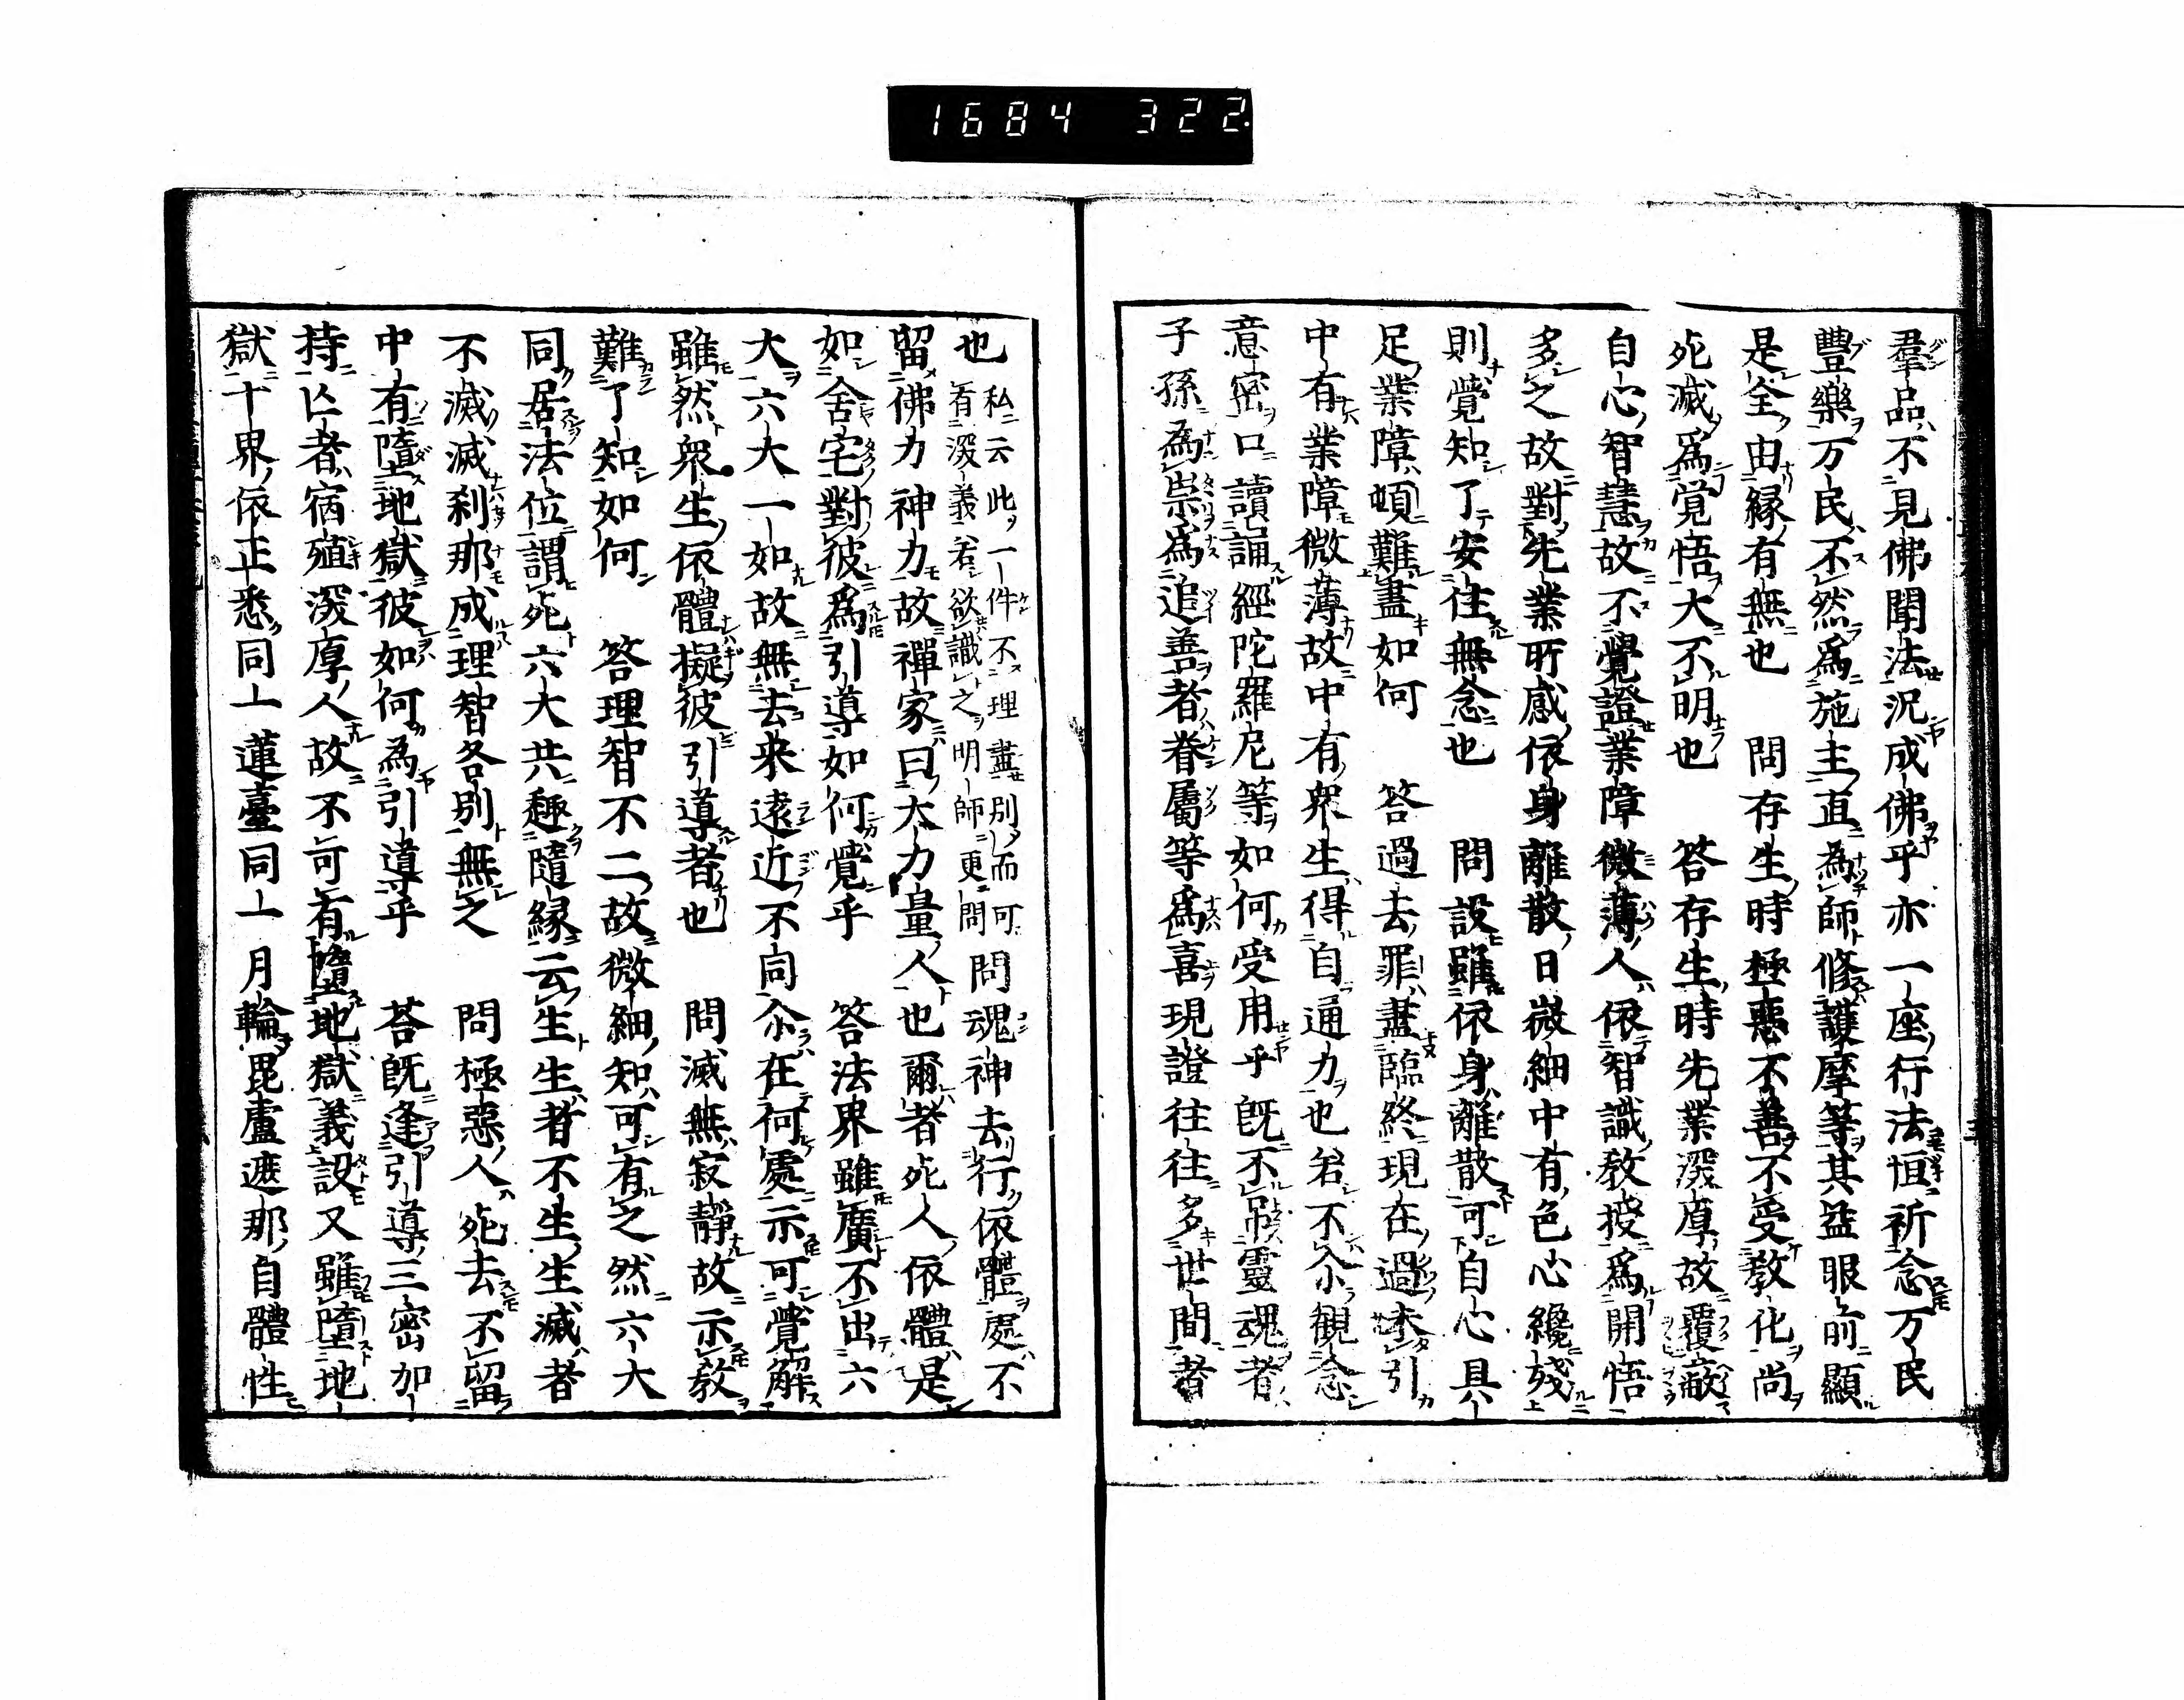 1684 322
羣品不見佛聞法況成佛乎亦一座行法恒祈念万民
豐樂万民不然為施主直為師修護摩等其益眼前顯
是全由縁有無也　問存生時極悪不善不受教化尚
死滅為覚悟大不明也　答存生時先業深厚故覆蔽
自心智慧故不覺證業障微薄人依智識教授為開悟
多之故對先業所感依身離散日微細中有色心纔殘
則覺知了安往無念也　問設雖依身離散可自心具
足業障頓難盡如何　答過去罪盡臨終現在過未引
中有業障微薄故中有衆生得自通力也若不尒觀念
意密口讀誦經陀羅尼等如何受用乎既不吊靈魂者
子孫為祟為追善者眷屬等為喜現證往往多世間者
也私云此一件不理盡別而可
有深義若欲識之明師更問問魂神去行依體處不
留佛力神力故禪家曰大力量人也爾者死人依體是
如舍宅對彼為引導如何覺乎　答法界雖廣不出六
大六大一如故無去来遠近不同尒在何處示可覺解
雖然衆生依體擬彼引導者也　問滅無寂靜故示教
難了知如何　答理智不二故微細知可有之然六大
同居法位謂死六大共趣隨縁云生生者不生生滅者
不滅滅刹那成理智各別無之　問極惡人死去不留
中有墮地獄彼如何為引導乎　荅既逢引導三密加
持亡者宿殖深厚人故不可有墮地獄義設又雖墮地
獄十界依正悉同一蓮臺同一月輪毘盧遮那自體性